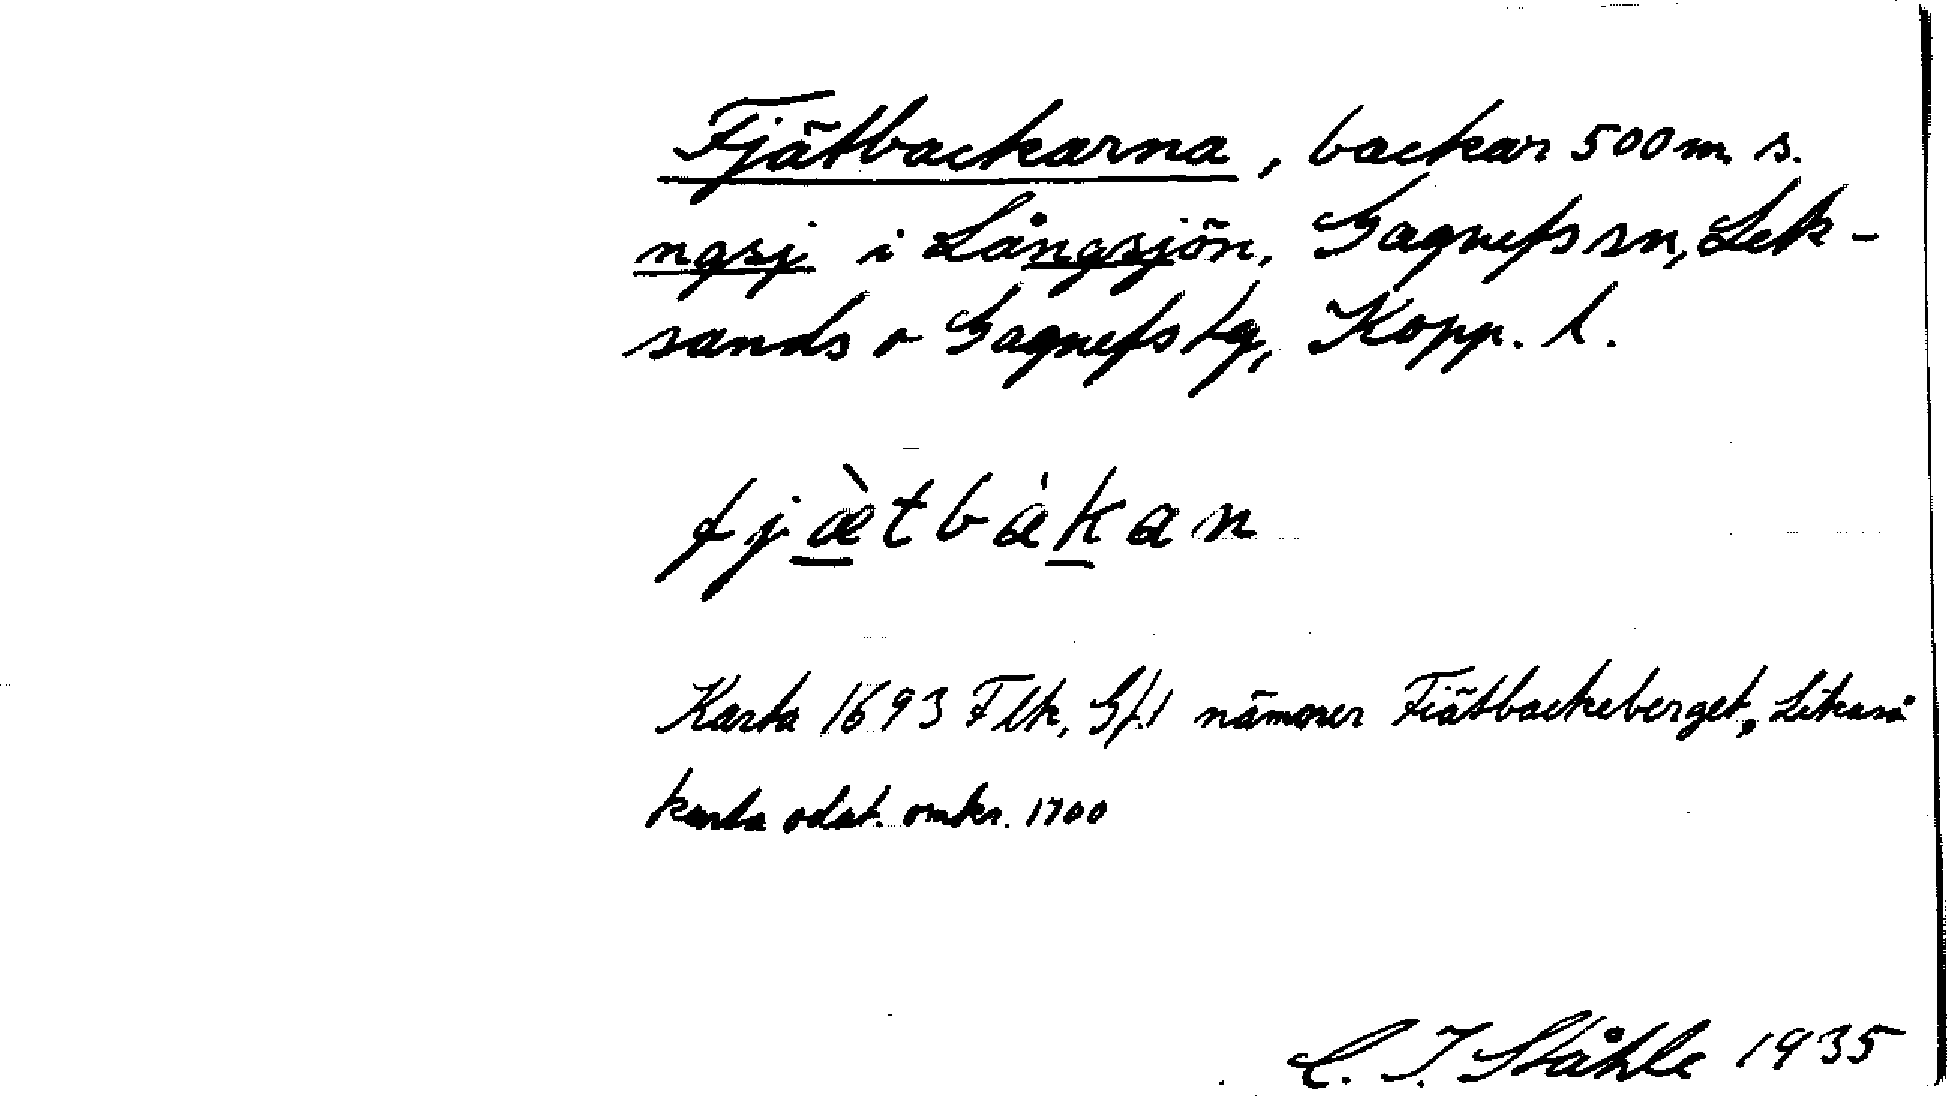 Fjätbackarna, backar 500 m. s.
ngsj i Långsjön, Gagnefs sn, Lek-
sands o Gagnefs tg, Kopp. l.
fjæ̀tbàkan
Karta 1693 Flk, G/1 nämner Fiätbackeberget, Likaså
karta odat. omkr. 1700
C. I. Ståhle 1935